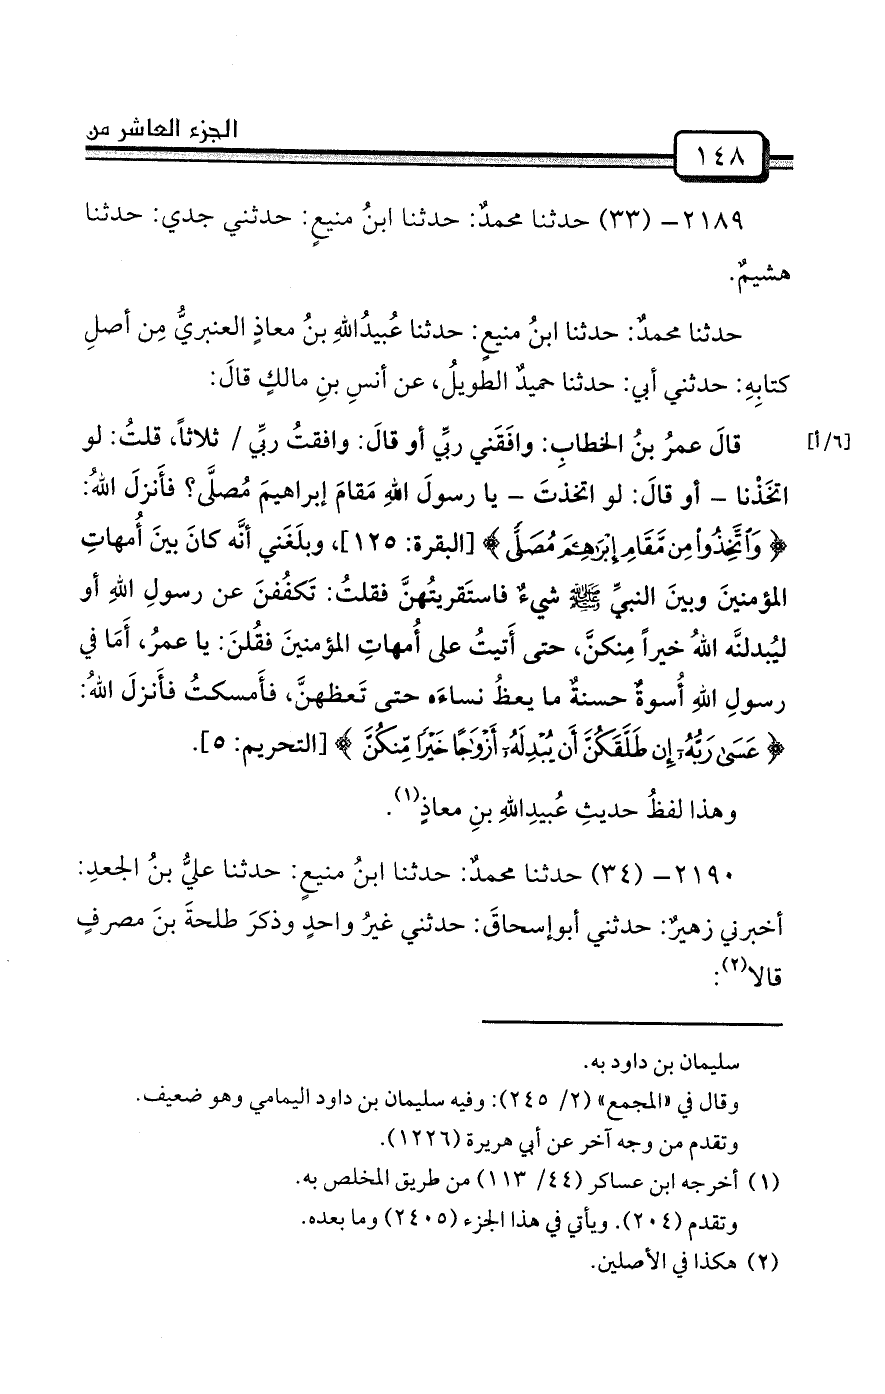 الجزء العاشر من
١٤٨
٢١٨٩– (٣٣) حدثنا محمدٌ: حدثنا ابنُ منيعٍ: حدثني جدي: حدثنا
هشيمٌ.
حدثنا محمدٌ: حدثنا ابنُ منيعٍ: حدثنا عُبيدُاللهِ بنُ معاذٍ العنبريُّ مِن أصلِ
كتابِهِ: حدثني أبي: حدثنا حميدٌ الطويلُ، عن أنسِ بنِ مالكٍ قالَ:
[٦/أ] قالَ عمرُ بنُ الخطابِ: وافَقَني ربِّي أو قالَ: وافقتُ ربِّي / ثلاثاً، قلتُ: لو
اتخَذْنا – أو قالَ: لو اتخذتَ – يا رسولَ اللهِ مَقامَ إبراهيمَ مُصلَّى؟ فأَنزلَ اللهُ:
﴿ وَٱتَّخِذُوا۟ مِن مَّقَامِ إِبْرَٰهِـۧمَ مُصَلًّى ﴾ [البقرة: ١٢٥]، وبلَغَني أنَّه كانَ بينَ أُمهاتِ
المؤمنينَ وبينَ النبيِّ ﷺ شيءٌ فاستَقريتُهنَّ فقلتُ: تَكفُفنَ عن رسولِ اللهِ أو
ليُبدلنَّه اللهُ خيراً مِنكنَّ، حتى أَتيتُ على أُمهاتِ المؤمنينَ فقُلنَ: يا عمرُ، أَمَا في
رسولِ اللهِ أُسوةٌ حسنةٌ ما يعظُ نساءَه حتى تَعظهنَّ، فأَمسكتُ فأَنزلَ اللهُ:
﴿ عَسَىٰ رَبُّهُۥٓ إِن طَلَّقَكُنَّ أَن يُبْدِلَهُۥٓ أَزْوَٰجًا خَيْرًا مِّنكُنَّ ﴾ [التحريم: ٥].
وهذا لفظُ حديثِ عُبيدِاللهِ بنِ معاذٍ(١).
٢١٩٠– (٣٤) حدثنا محمدٌ: حدثنا ابنُ منيعٍ: حدثنا عليُّ بنُ الجعدِ:
أخبرني زهيرٌ: حدثني أبوإسحاقَ: حدثني غيرُ واحدٍ وذكرَ طلحةَ بنَ مصرفٍ
قالا(٢):
سليمان بن داود به.
وقال في «المجمع» (٢/ ٢٤٥): وفيه سليمان بن داود اليمامي وهو ضعيف.
وتقدم من وجه آخر عن أبي هريرة (١٢٢٦).
(١) أخرجه ابن عساكر (٤٤/ ١١٣) من طريق المخلص به.
وتقدم (٢٠٤). ويأتي في هذا الجزء (٢٤٠٥) وما بعده.
(٢) هكذا في الأصلين.